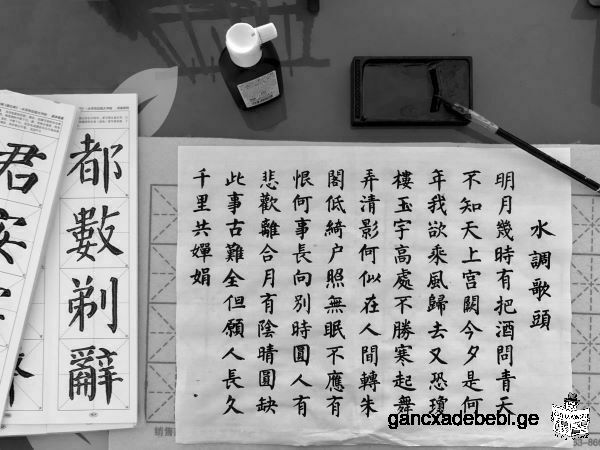 水調歌頭
明月幾時有把酒問青天
不知天上宮闕今夕是何
年我欲乘風歸去又恐瓊
樓玉宇高處不勝寒起舞
弄清影何似在人間轉朱
閣低綺户照無眠不應有
恨何事長向別時圓人有
悲歡離合月有陰晴圓缺
此事古難全但願人長久
千里共嬋娟
都數剃辭
君安
销售
gancxadebebi.ge